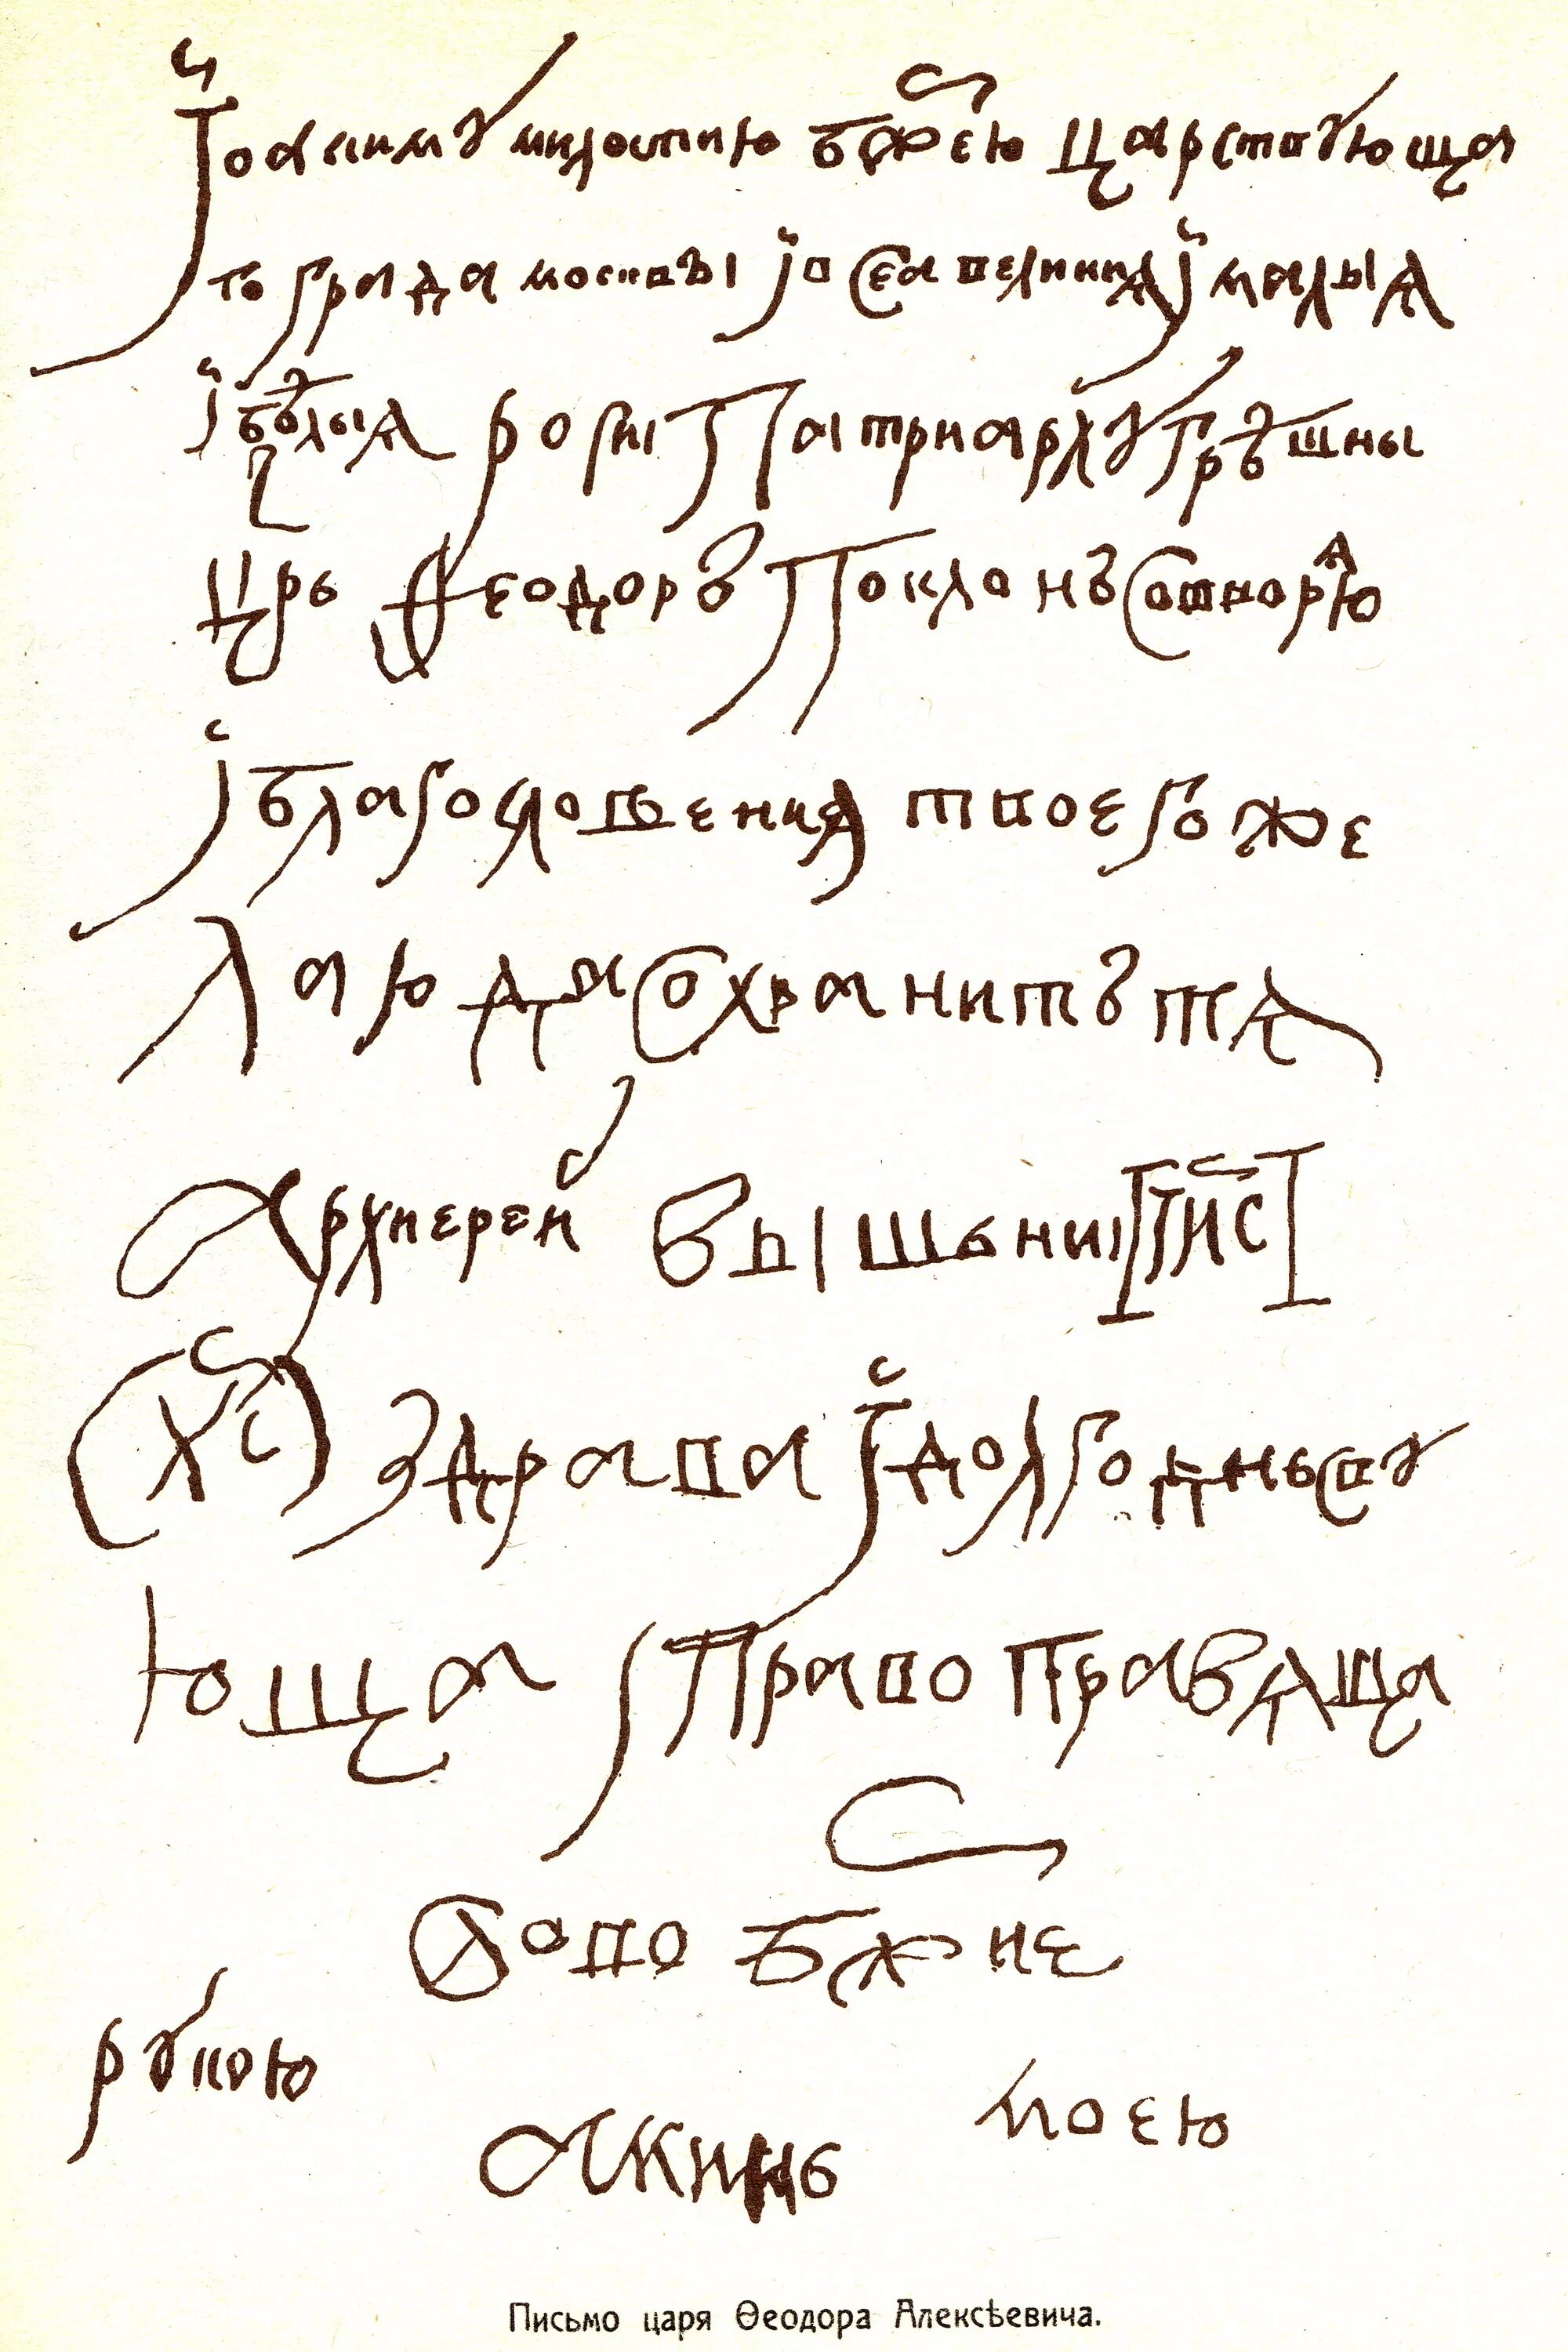 Їоакиму милостию бжию царствующа
го града москвы ї всеа великия ї малыя
ї бѣлыя росиї патриарху грѣшны
црь Ѳеодоръ поклонъ сотворяю
ї благословения твоего же
лаю да сохранитъ тя
архиерей вышьниї їис
(хс) здрава ї долгоденьств
ующа ї право правяща
слово бжие
рукою
моею
аминь
Письмо царя Ѳеодора Алексѣевича.